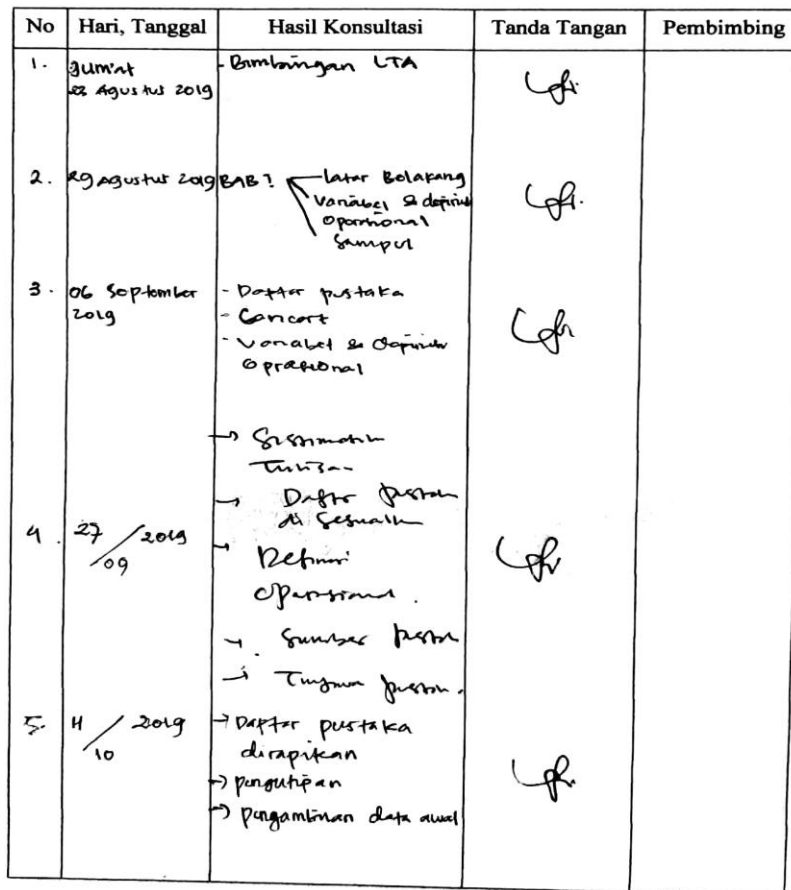 No Hari, Tanggal Hasil Konsultasi Tanda Tangan Pembimbing
1. Jum'at - Bimbingan LTA
23 Agustus 2019
2. 29 Agustus 2019 BAB 1 latar Belakang
Variabel & definisi
Operasional
Sampel
3. 06 September - Daftar pustaka
2019 - Concort
- Variabel & Definisi
Oprasional
→ Sistimatika
Tulisan
→ Daftar pustaka
di sesuaikan
4. 27/09 2019 → Definisi
Operasional.
→ Sumber pustaka
→ Tinjauan pustaka.
5. 11/10 2019 → Daftar pustaka
dirapikan
→ pengutipan
→ pengambilan data awal